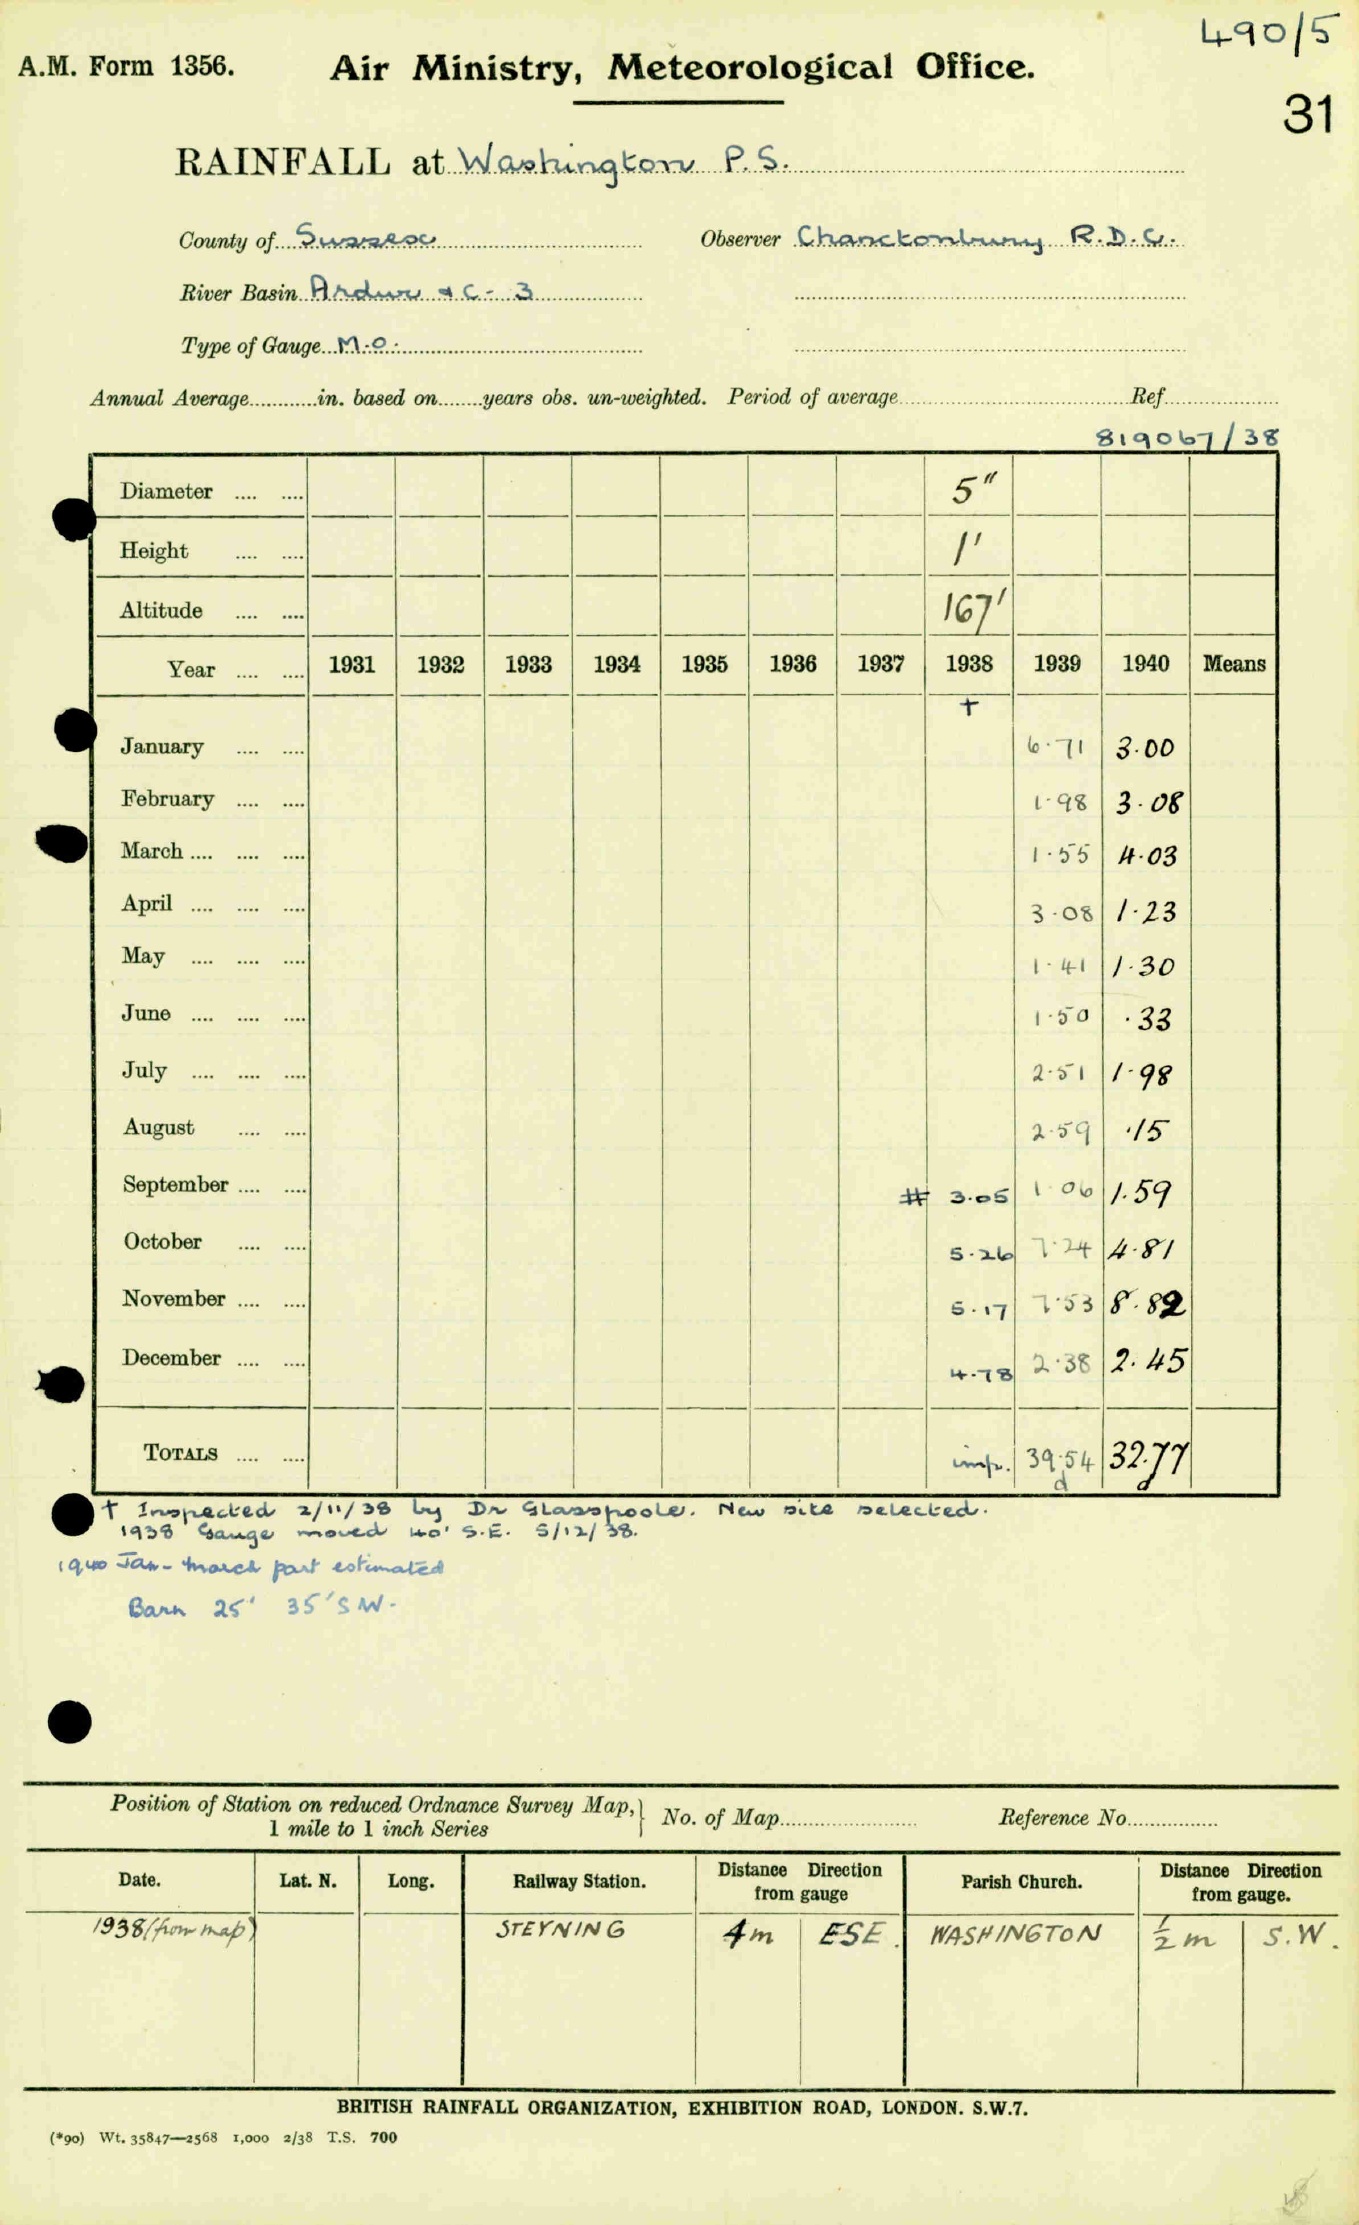 490/5
A.M. Form 1356. Air Ministry, Meteorological Office.
31
RAINFALL at Washington P.S.
County of Sussex Observer Chanctonbury R.D.C.
River Basin Ardur &c - 3
Type of Gauge M.O.
Annual Average............in. based on.......years obs. un-weighted. Period of average Ref.
819067/38
Diameter .... .... 5"
Height .... .... 1'
Altitude .... .... 167'
Year .... .... 1931 1932 1933 1934 1935 1936 1937 1938 1939 1940 Means
†
January .... .... 6.71 3.00
February .... .... 1.98 3.08
March .... .... .... 1.55 4.03
April .... .... .... 3.08 1.23
May .... .... .... 1.41 1.30
June .... .... .... 1.50 .33
July .... .... .... 2.51 1.98
August .... .... 2.59 .15
September .... .... # 3.05 1.06 1.59
October .... .... 5.26 7.24 4.81
November .... .... 5.17 7.53 8.82
December .... .... 4.78 2.38 2.45
TOTALS .... .... imp. 39.54 32.77
d d
† Inspected 2/11/38 by Dr Glasspoole. New site selected.
1938 Gauge moved 40' S.E. 5/12/38.
1940 Jan - March part estimated
Barn 25' 35' SW.
Position of Station on reduced Ordnance Survey Map, 1 mile to 1 inch Series } No. of Map Reference No.
Date. Lat. N. Long. Railway Station. Distance Direction from gauge Parish Church. Distance Direction from gauge.
1938 (from map) STEYNING 4m ESE. WASHINGTON ½ m S.W.
BRITISH RAINFALL ORGANIZATION, EXHIBITION ROAD, LONDON. S.W.7.
(*90) Wt. 35847—2568 1,000 2/38 T.S. 700